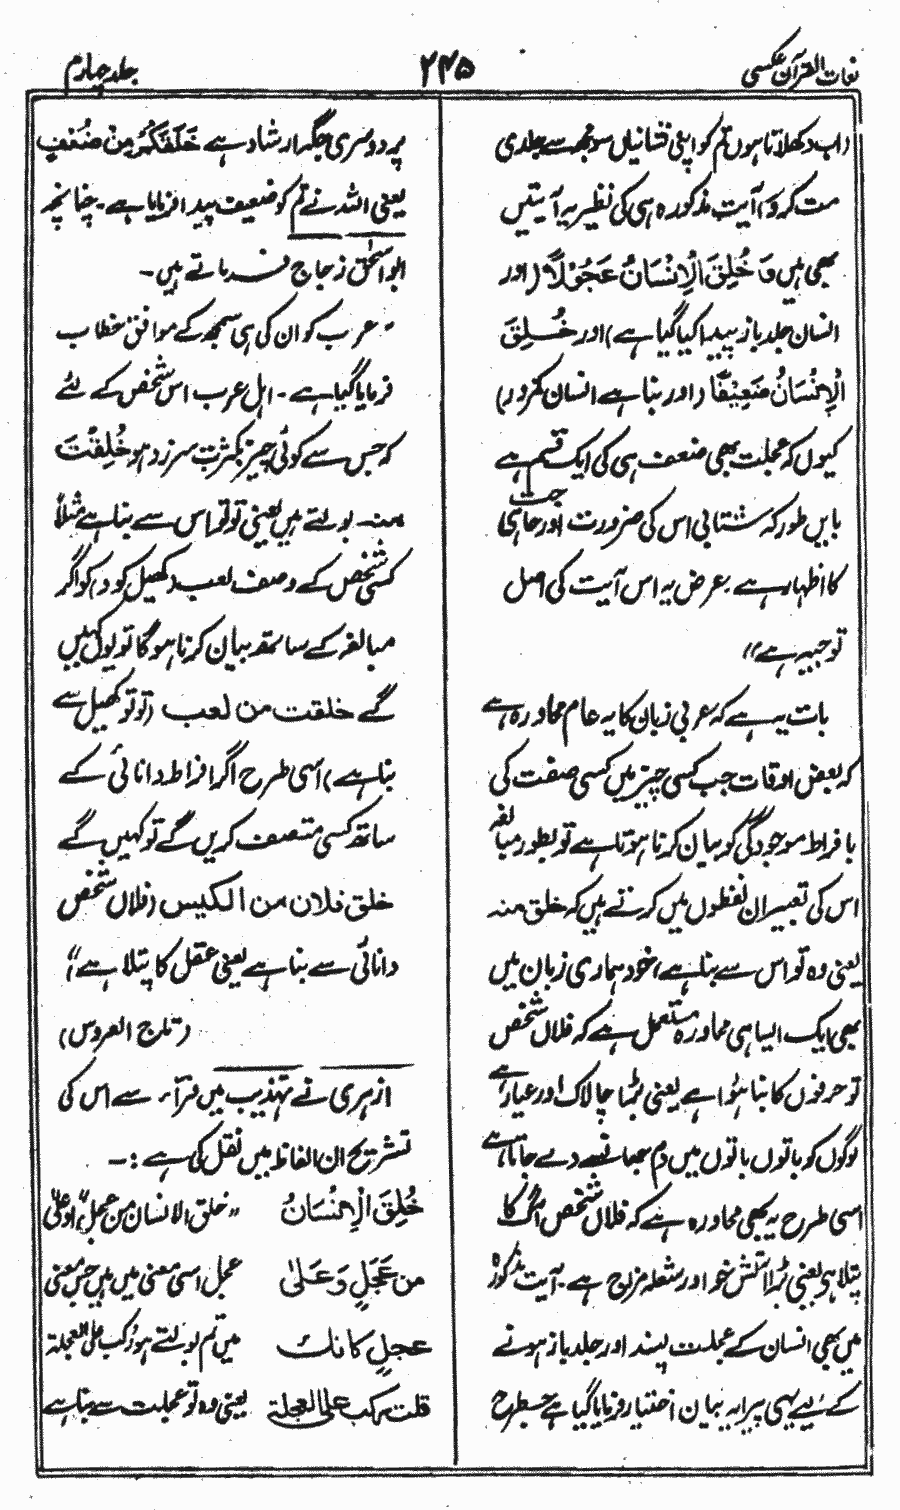 لغات القرآن عکسی
۲۴۵
جلد چہارم
(اب دکھلاتا ہوں تم کو اپنی نشانیاں سو مجھ سے جلدی
مت کرو) آیت مذکورہ ہی کی نظیر یہ آیتیں
بھی ہیں وَ خُلِقَ الْاِنْسَانُ عَجُوْلًا (اور
انسان جلد باز پیدا کیا گیا ہے) اور خُلِقَ
الْاِنْسَانُ ضَعِيْفًا (اور بنا ہے انسان کمزور)
کیوں کہ عجلت بھی ضعف ہی کی ایک قسم ہے
بایں طور کہ شتابی اس کی ضرورت اور حاجت ہی
کا اظہار ہے بہرحال یہ اس آیت کی اصل
توجیہ ہے))
بات یہ ہے کہ عربی زبان کا یہ عام محاورہ ہے
کہ بعض اوقات جب کسی چیز میں کسی صفت کی
با فراط موجودگی کو بیان کرنا ہوتا ہے تو بطور مبالغہ
اس کی تعبیر ان لفظوں میں کرتے ہیں کہ خلق منہ
یعنی وہ تو اس سے بنا ہے، خود ہماری زبان میں
بھی ایک ایسا ہی محاورہ مستعمل ہے کہ فلاں شخص
تو حرفوں کا بنا ہوا ہے یعنی بڑا چالاک اور عیار ہے
لوگوں کو باتوں باتوں میں دم جھانسے دے جاتا ہے
اسی طرح یہ بھی محاورہ ہے کہ فلاں شخص آگ کا
پتلا ہے یعنی بڑا آتش خو اور شعلہ مزاج ہے۔ آیت مذکورہ
میں بھی انسان کے عجلت پسند اور جلد باز ہونے
کے لیے یہی پیرایہ بیان اختیار فرمایا گیا ہے جس طرح
پر دوسری جگہ ارشاد ہے خَلَقَكُمْ مِنْ ضُعْفٍ
یعنی اللہ نے تم کو ضعیف پیدا فرمایا ہے۔ چنانچہ
ابو اسحٰق زجاج فرماتے ہیں۔
" عرب کو ان کی ہی سمجھ کے موافق خطاب
فرمایا گیا ہے۔ اہل عرب اس شخص کے لئے
کہ جس سے کوئی چیز بکثرت سرزد ہو خُلِقْتَ
منہ۔ بولتے ہیں یعنی تو تو اس سے بنا ہے مثلاً
کسی شخص کے وصف لعب (کھیل کود) کو اگر
مبالغہ کے ساتھ بیان کرنا ہوگا تو یوں کہیں
گے خلقت من لعب (تو تو کھیل سے
بنا ہے) اسی طرح اگر افراط دانائی کے
ساتھ کسی متصف کریں گے تو کہیں گے
خلق فلان من الکیس (فلاں شخص
دانائی سے بنا ہے یعنی عقل کا پتلا ہے)"
(تاج العروس)
ازہری نے تہذیب میں فرآء سے اس کی
تشریح ان الفاظ میں نقل کی ہے:۔
خُلِقَ الْاِنْسَانُ
من عَجَلٍ وَ عَلیٰ
عجلٍ كانك
قلت ركب على العجلة
" خلق الانسان من عجل" اور علیٰ
عجل اسی معنی میں ہیں جس معنی
میں تم بولتے ہو رُکب علی العجلۃ
یعنی وہ تو عجلت سے بنا ہے